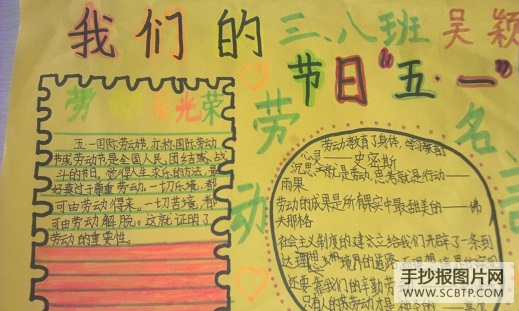 我们的
三、八班 吴颖
节日"五·一"
劳动最光荣
五一国际劳动节,亦称国际劳动
节或劳动节是全国人民,团结或战
斗的节日。觉得人生乐的方法,最
好莫过于尊重劳动。一切乐境,都
可由劳动得来。一切苦境,都
可由劳动解脱。这就证明了
劳动的重要性。
劳动
名言
劳动教育了身体,学习教育
心灵——史密斯
沉思就是劳动,思考就是行动——
雨果
劳动的成果是所有果实中最甜美的——佛
夫那格
社会主义制度的建立给我们开辟了一条到
达理想境界的道路,
还要靠我们的辛勤劳
只有人的劳动才是
手抄报图片网
WWW.SCBTP.COM